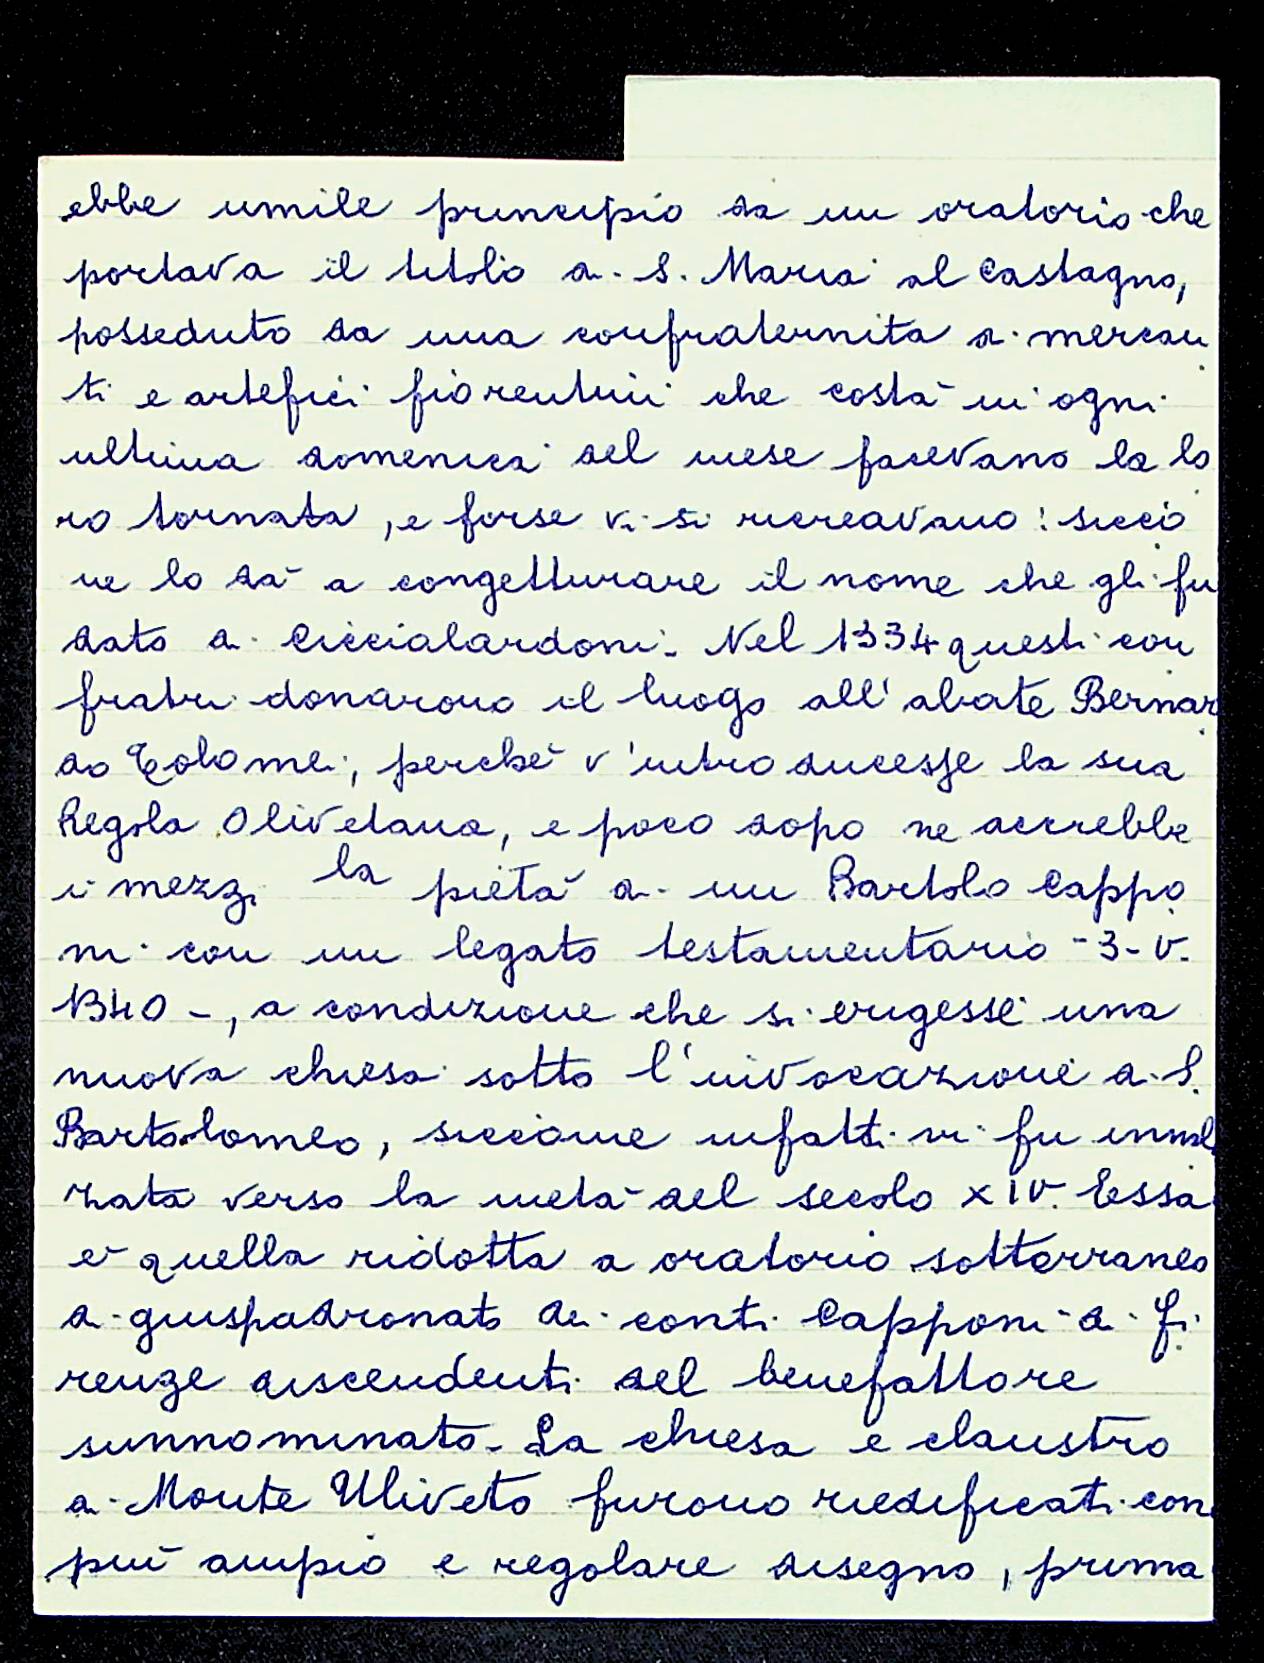 ebbe umile principio da un oratorio che
portava il titolo di S. Maria al Castagno,
posseduto da una confraternita di mercan
ti e artefici fiorentini che costà in ogni
ultima domenica del mese facevano la lo
ro tornata, e forse vi si ricreavano: sicco
me lo dà a congetturare il nome che gli fu
dato di Ciccialardoni. Nel 1334 questi con
fratri donarono il luogo all'abate Bernar
do Tolomei, perchè v'introducesse la sua
Regola Olivetana, e poco dopo ne accrebbe
i mezzi la pietà di un Bartolo Cappo
ni con un legato testamentario - 3 - V.
1340 -, a condizione che si erigesse una
nuova chiesa sotto l'invocazione di S.
Bartolomeo, siccome infatti vi fu innal
zata verso la metà del secolo XIV. Essa
è quella ridotta a oratorio sotterraneo
di giuspadronato dei conti Capponi di Fi
renze discendenti del benefattore
sunnominato. La chiesa e claustro
di Monte Uliveto furono riedificati con
più ampio e regolare disegno, prima